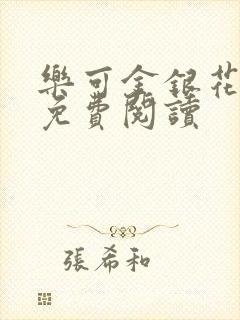 樂可金銀花
免費閱讀
張希和